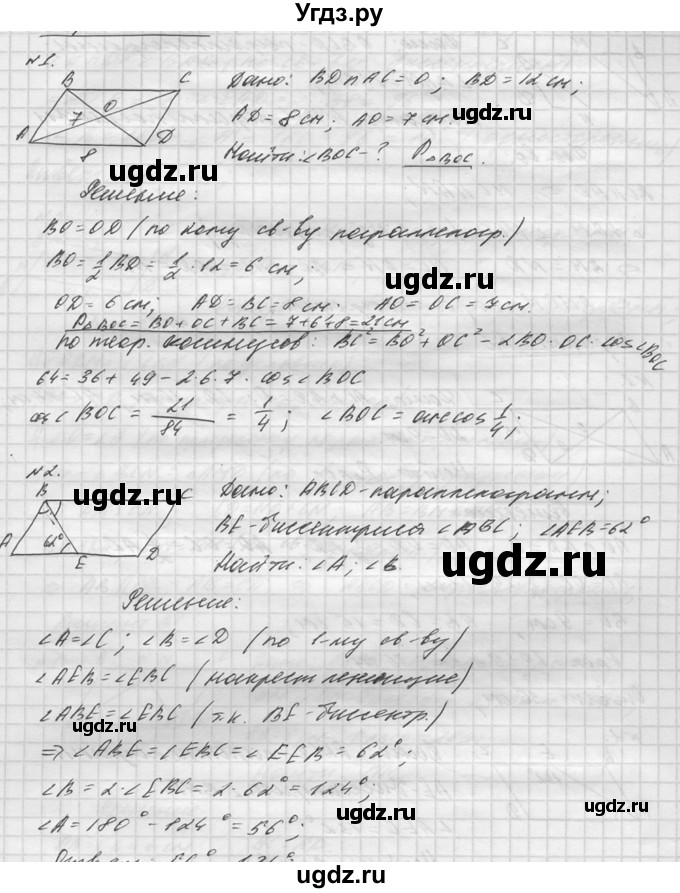 Угдз.ру
№1.
B C
Дано: BD∩AC=O; BD=12 см;
7 O
A D
AD=8 см; AO=7 см.
8
Найти: ∠BOC-? P△BOC.
ugdz.ru ugdz.ru
Решение:
BO=OD (по кому св-ву параллелогр.)
BO=1/2 BD=1/2·12=6 см;
ugdz.ru
OD=6 см; AD=BC=8 см. AO=OC=7 см.
P△BOC=BO+OC+BC=7+6+8=21 см
По теор. косинусов: BC²=BO²+OC²-2BO·OC·cos∠BOC
64=36+49-2·6·7·cos∠BOC
cos∠BOC=21/84=1/4; ∠BOC=arccos 1/4;
ugdz.ru
№2.
B C
Дано: ABCD-параллелограмм;
ugdz.ru
A 62° E D
BE-биссектриса ∠ABC; ∠AEB=62°
Найти: ∠A; ∠B.
ugdz.ru
Решение:
∠A=∠C; ∠B=∠D (по 1-му св-ву)
∠AEB=∠EBC (накрест лежащие)
ugdz.ru
∠ABE=∠EBC (т.к. BE-биссектр.)
ugdz.ru
⇒∠ABE=∠EBC=∠EEB=62°;
∠B=2·∠EBC=2·62°=124°;
ugdz.ru
∠A=180°-124°=56°;
ugdz.ru